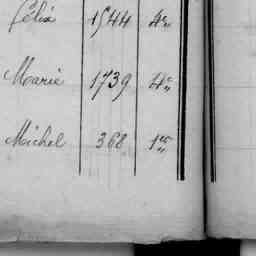 Félix 1544 4e
Marie 1739 4e
Michel 368 1er